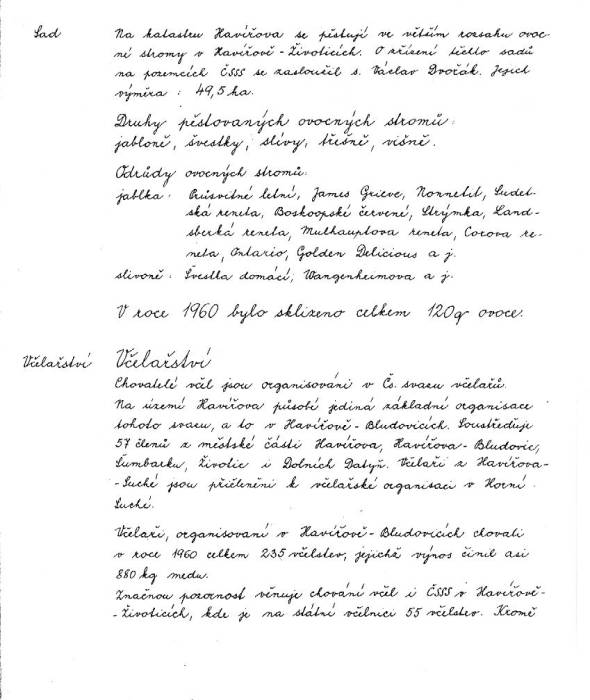 Sad
Na katastru Havířova se pěstují ve větším rozsahu ovoc-
né stromy v Havířově-Životicích. O zřízení těchto sadů
na pozemcích ČSSS se zasloužil s. Václav Dvořák. Jejich
výměra : 49,5 ha.
Druhy pěstovaných ovocných stromů:
jabloně, švestky, slívy, třešně, višně.
Odrůdy ovocných stromů:
jablka: Průsvitné letní, James Grieve, Nonnetit, Sudet-
ská reneta, Boskoopské červené, Strýmka, Land-
sberká reneta, Mulhauptova reneta, Coxova re-
neta, Ontario, Golden Delicious a j.
slivoně: Švestka domácí, Wangenheimova a j.
V roce 1960 bylo sklizeno celkem 120 q ovoce.
Včelařství
Včelařství
Chovatelé včel jsou organisováni v Čs. svazu včelařů.
Na území Havířova působí jediná základní organisace
tohoto svazu, a to v Havířově-Bludovicích. Soustřeďuje
57 členů z městské části Havířova, Havířova-Bludovic,
Šumbarku, Životic i Dolních Datyň. Včelaři z Havířova-
-Suché jsou přičleněni k včelařské organisaci v Horní
Suché.
Včelaři, organisovaní v Havířově-Bludovicích chovali
v roce 1960 celkem 235 včelstev, jejichž výnos činil asi
880 kg medu.
Značnou pozornost věnuje chování včel i ČSSS v Havířově-
-Životicích, kde je na státní včelnici 55 včelstev. Kromě